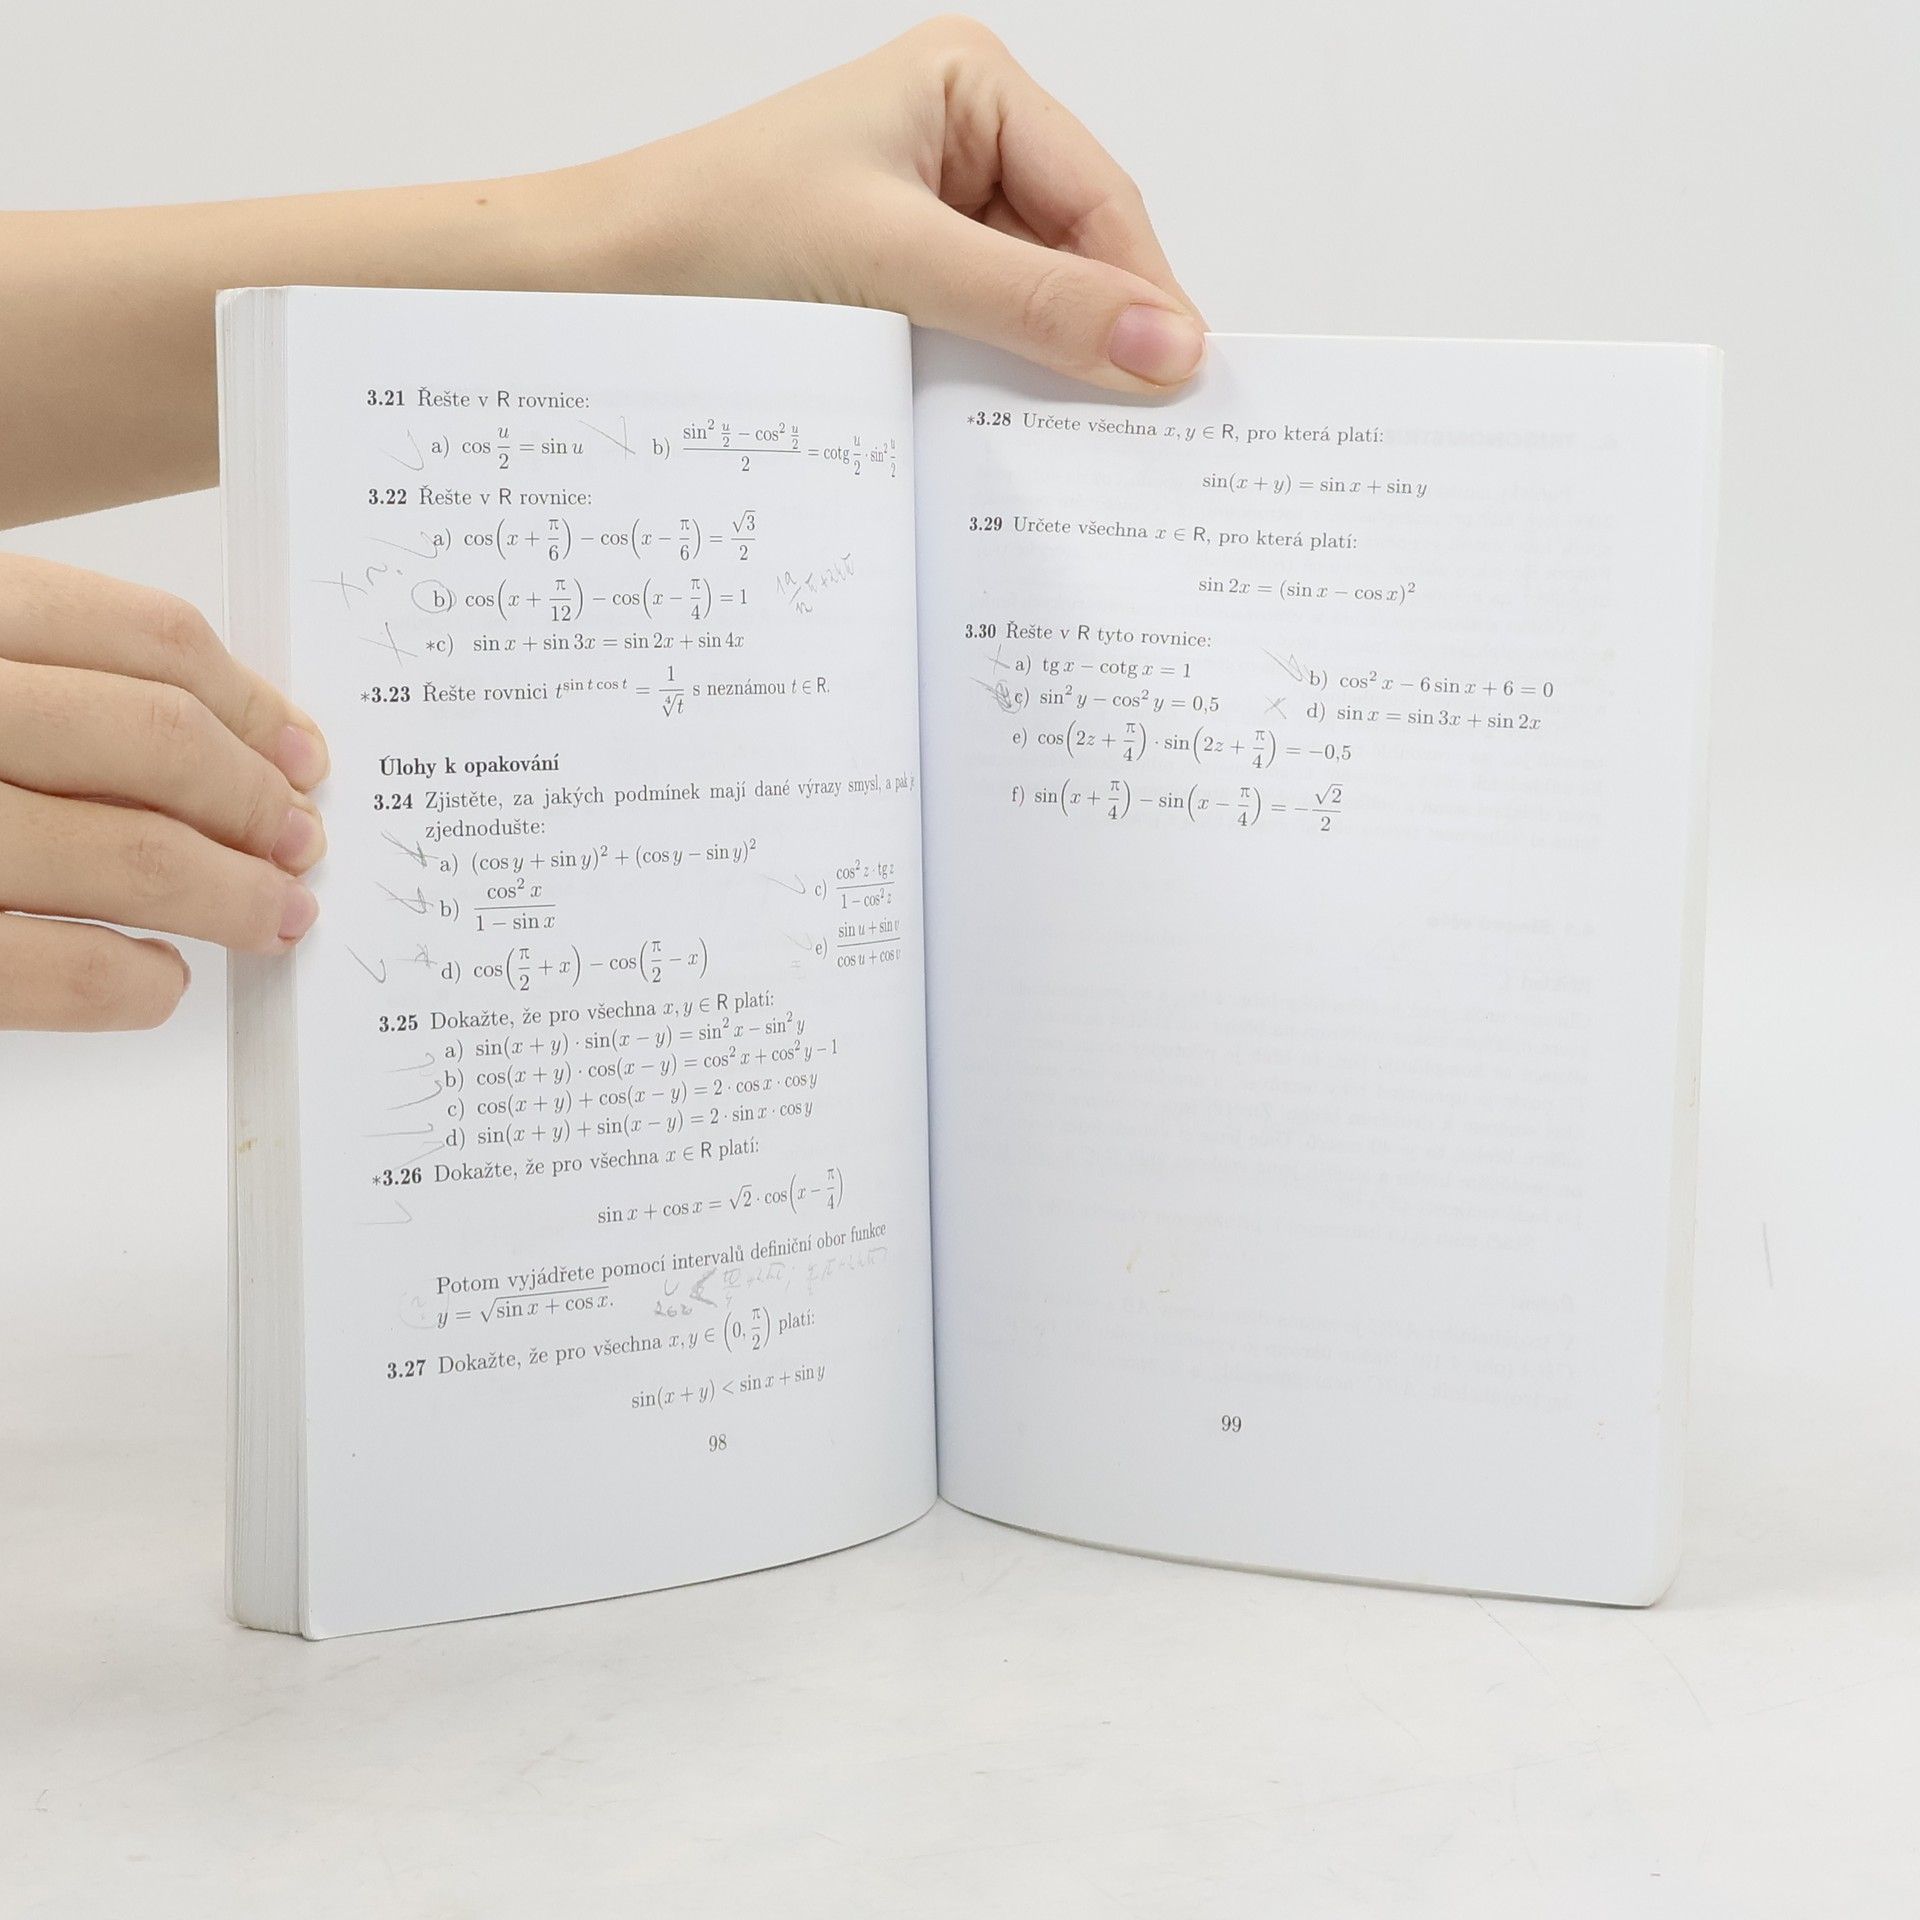 3.21 Řešte v R rovnice:
a) cos u/2 = sin u b) (sin² u/2 − cos² u/2)/2 = cotg u/2 · sin² u/2
3.22 Řešte v R rovnice:
a) cos(x + π/6) − cos(x − π/6) = √3/2
b) cos(x + π/12) − cos(x − π/4) = 1
*c) sin x + sin 3x = sin 2x + sin 4x
*3.23 Řešte rovnici t^(sin t cos t) = 1/⁴√t s neznámou t ∈ R.
Úlohy k opakování
3.24 Zjistěte, za jakých podmínek mají dané výrazy smysl, a pak je
zjednodušte:
a) (cos y + sin y)² + (cos y − sin y)²
b) cos² x/(1 − sin x) c) (cos² z · tg z)/(1 − cos² z)
d) cos(π/2 + x) − cos(π/2 − x) e) (sin u + sin v)/(cos u + cos v)
3.25 Dokažte, že pro všechna x, y ∈ R platí:
a) sin(x + y) · sin(x − y) = sin² x − sin² y
b) cos(x + y) · cos(x − y) = cos² x + cos² y − 1
c) cos(x + y) + cos(x − y) = 2 · cos x · cos y
d) sin(x + y) + sin(x − y) = 2 · sin x · cos y
*3.26 Dokažte, že pro všechna x ∈ R platí:
sin x + cos x = √2 · cos(x − π/4)
Potom vyjádřete pomocí intervalů definiční obor funkce
y = √(sin x + cos x).
3.27 Dokažte, že pro všechna x, y ∈ (0, π/2) platí:
sin(x + y) < sin x + sin y
98
*3.28 Určete všechna x, y ∈ R, pro která platí:
sin(x + y) = sin x + sin y
3.29 Určete všechna x ∈ R, pro která platí:
sin 2x = (sin x − cos x)²
3.30 Řešte v R tyto rovnice:
a) tg x − cotg x = 1 b) cos² x − 6 sin x + 6 = 0
c) sin² y − cos² y = 0,5 d) sin x = sin 3x + sin 2x
e) cos(2z + π/4) · sin(2z + π/4) = −0,5
f) sin(x + π/4) − sin(x − π/4) = −√2/2
99